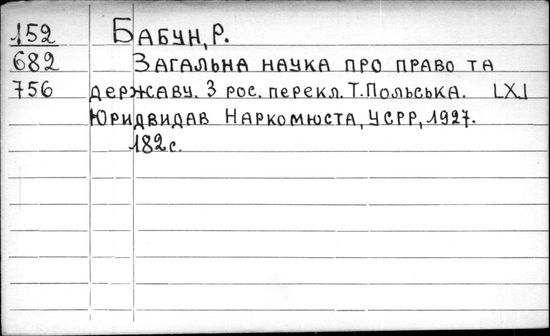 152 БАБУН, Р.
682 ЗАГАЛЬНА НАУКА ПРО ПРАВО ТА
756 ДЕРЖАВУ. З РОС. ПЕРЕКЛ. Т. ПОЛЬСЬКА. LXI
ЮРИДВИДАВ НАРКОМЮСТА, УСРР, 1927.
182 с.